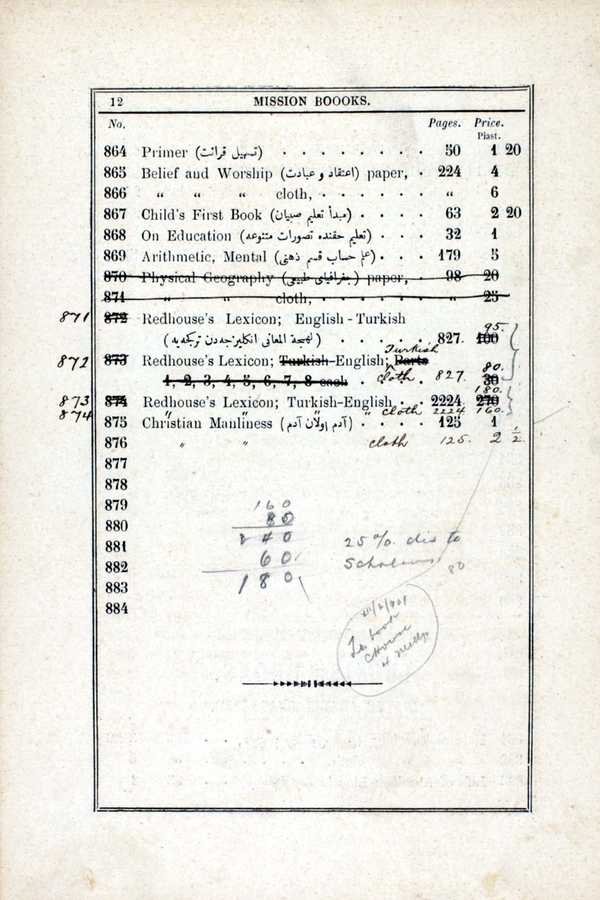 12 MISSION BOOOKS.
No. Pages. Price.
Piast.
864 Primer (تسهيل قرائت) . . . . . . . 50 1 20
865 Belief and Worship (اعتقاد و عبادت) paper, . 224 4
866 " " " cloth, . . . . . . " 6
867 Child's First Book (مبدأ تعليم صبيان) . . . . 63 2 20
868 On Education (تعليم حقنده تصورات متنوعه) . . . 32 1
869 Arithmetic, Mental (علم حساب قسم ذهنى) . . . 179 5
870 Physical Geography (جغرافياى طبيعى) paper, . 98 20
871 " " cloth, . . . . . . " 25
871 872 Redhouse's Lexicon; English-Turkish 95.
(لهجة المعانى انكليزجه‌دن تركجه‌يه) . . . . . 827. 100
Turkish
872 873 Redhouse's Lexicon; Turkish-English; Parts 80.
1, 2, 3, 4, 5, 6, 7, 8 each . cloth . 827. 30
180.
873 874 Redhouse's Lexicon; Turkish-English . . 2224 270
874 " " " " cloth 2224 160.
875 Christian Manliness (آدم اولان آدم) . . . . 125 1
876 " " cloth 125. 2 1/2.
877
878
879
160
880 80
881 240
25% dis to
882 60
Scholars
80
883 180
884
To book
House